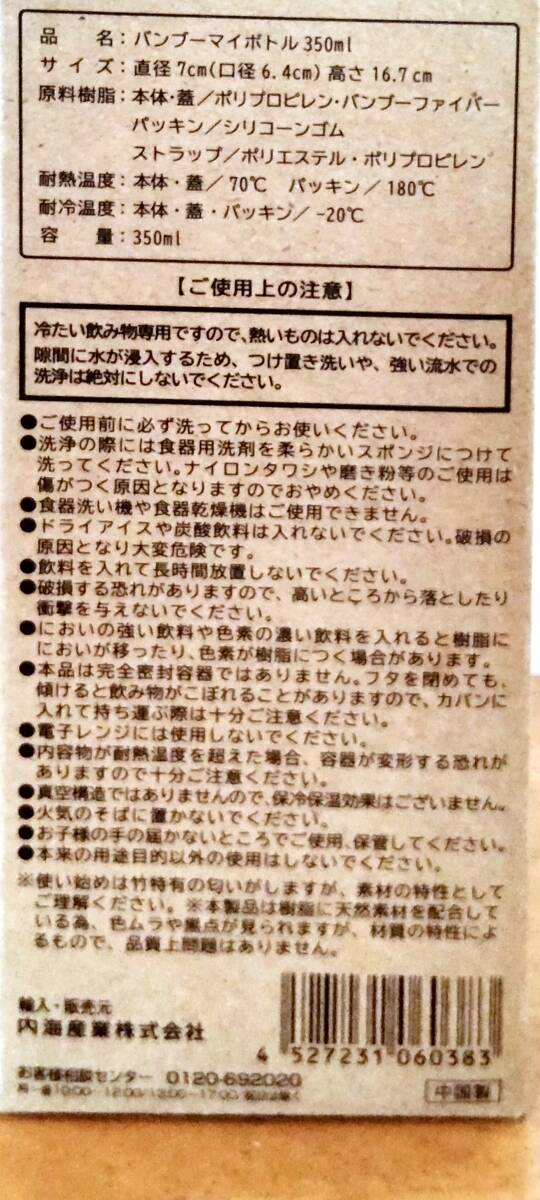 品　　名：バンブーマイボトル350ml
サ イ ズ：直径7cm(口径6.4cm) 高さ16.7cm
原料樹脂：本体・蓋／ポリプロピレン・バンブーファイバー
パッキン／シリコーンゴム
ストラップ／ポリエステル・ポリプロピレン
耐熱温度：本体・蓋／70℃　パッキン／180℃
耐冷温度：本体・蓋・パッキン／-20℃
容　　量：350ml
【ご使用上の注意】
冷たい飲み物専用ですので、熱いものは入れないでください。
隙間に水が浸入するため、つけ置き洗いや、強い流水での
洗浄は絶対にしないでください。
●ご使用前に必ず洗ってからお使いください。
●洗浄の際には食器用洗剤を柔らかいスポンジにつけて
洗ってください。ナイロンタワシや磨き粉等のご使用は
傷がつく原因となりますのでおやめください。
●食器洗い機や食器乾燥機はご使用できません。
●ドライアイスや炭酸飲料は入れないでください。破損の
原因となり大変危険です。
●飲料を入れて長時間放置しないでください。
●破損する恐れがありますので、高いところから落としたり
衝撃を与えないでください。
●においの強い飲料や色素の濃い飲料を入れると樹脂に
においが移ったり、色素が樹脂につく場合があります。
●本品は完全密封容器ではありません。フタを閉めても、
傾けると飲み物がこぼれることがありますので、カバンに
入れて持ち運ぶ際は十分ご注意ください。
●電子レンジには使用しないでください。
●内容物が耐熱温度を超えた場合、容器が変形する恐れが
ありますので十分ご注意ください。
●真空構造ではありませんので、保冷保温効果はございません。
●火気のそばに置かないでください。
●お子様の手の届かないところでご使用、保管してください。
●本来の用途目的以外の使用はしないでください。
※使い始めは竹特有の匂いがしますが、素材の特性として
ご理解ください。※本製品は樹脂に天然素材を配合して
いる為、色ムラや黒点が見られますが、材質の特性によ
るもので、品質上問題はありません。
輸入・販売元
内海産業株式会社
4 527231 060383
お客様相談センター　0120-692020
中国製